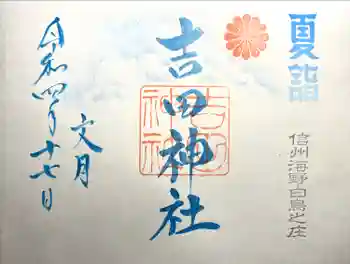 夏詣
信州海野白鳥之庄
吉田神社
文月
令和四年十七日